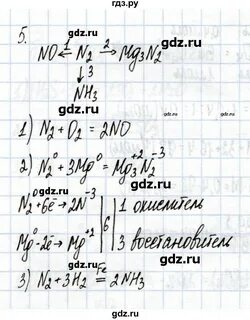 гдз.ру
5.
NO ←1 N₂ 2→ Mg₃N₂
↓3
NH₃
1) N₂ + O₂ = 2NO
2) N₂⁰ + 3Mg⁰ = Mg₃⁺²N₂⁻³
N₂⁰ + 6ē → 2N⁻³ | 6 | 1 окислитель
Mg⁰ - 2ē → Mg⁺² | 3 восстановитель
3) N₂ + 3H₂ =Fe 2NH₃
gdz.ru